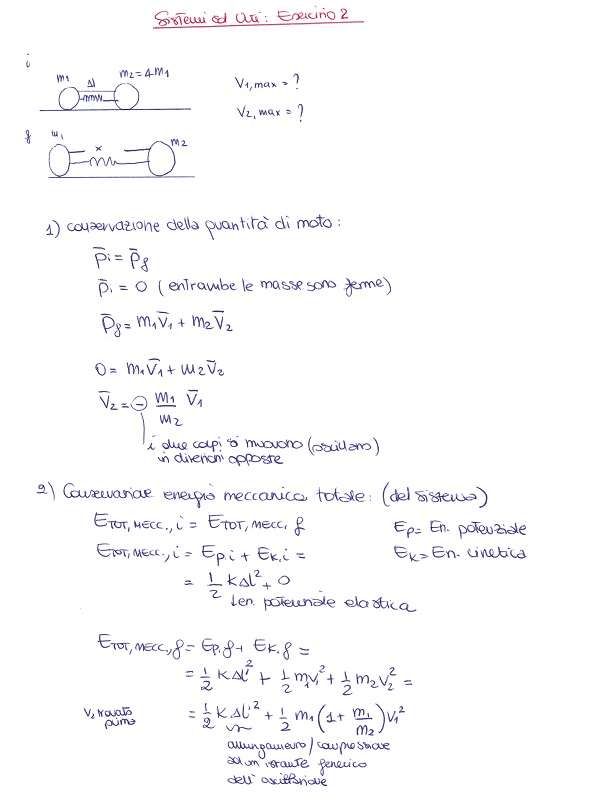 Sistemi ed Urti: Esercizio 2
i
m1 Δl m2=4m1
V1,max = ?
V2,max = ?
f
m1 x m2
1) conservazione della quantità di moto:
p̄i = p̄f
p̄i = 0 (entrambe le masse sono ferme)
p̄f = m1V̄1 + m2V̄2
0 = m1V̄1 + m2V̄2
V̄2 = - m1/m2 V̄1
i due corpi si muovono (oscillano)
in direzioni opposte
2) Conservazione energia meccanica totale: (del sistema)
ETOT, MECC., i = ETOT, MECC. f
EP = En. potenziale
ETOT, MECC., i = EP,i + EK,i =
EK = En. cinetica
= 1/2 KΔl² + 0
en. potenziale elastica
ETOT, MECC., f = EP,f + EK,f =
= 1/2 KΔl'² + 1/2 m1V1² + 1/2 m2V2² =
V2 trovato
prima
= 1/2 KΔl'² + 1/2 m1(1 + m1/m2)V1²
allungamento/compressione
ad un istante generico
dell'oscillazione